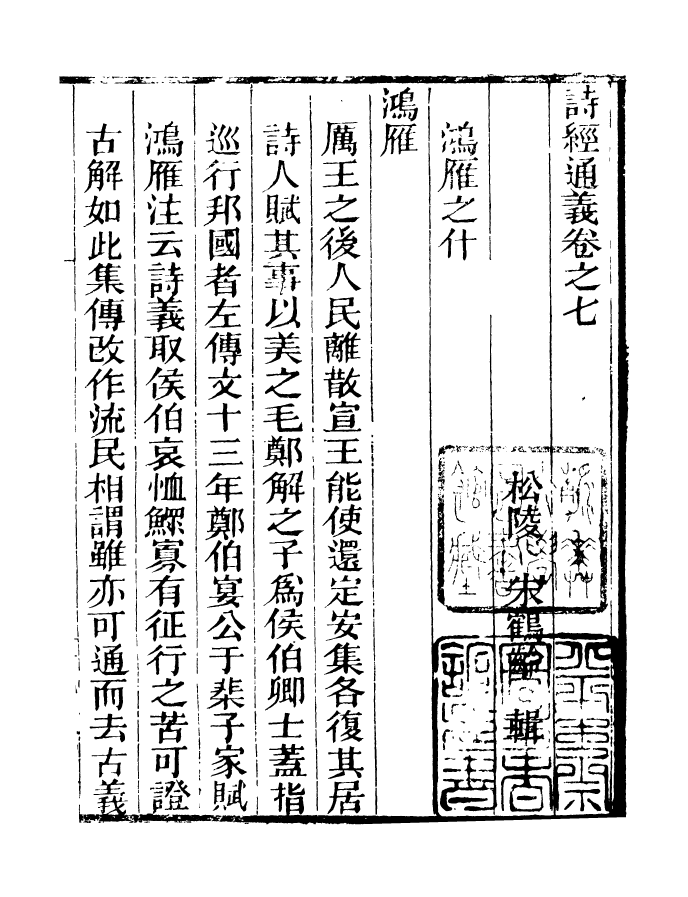 詩經通義卷之七
松陵 朱鶴齡 輯
鴻雁之什
鴻雁
厲王之後人民離散宣王能使還定安集各復其居
詩人賦其事以美之毛鄭解之子爲侯伯卿士蓋指
巡行邦國者左傳文十三年鄭伯宴公于棐子家賦
鴻雁注云詩義取侯伯哀恤鰥寡有征行之苦可證
古解如此集傳改作流民相謂雖亦可通而去古義